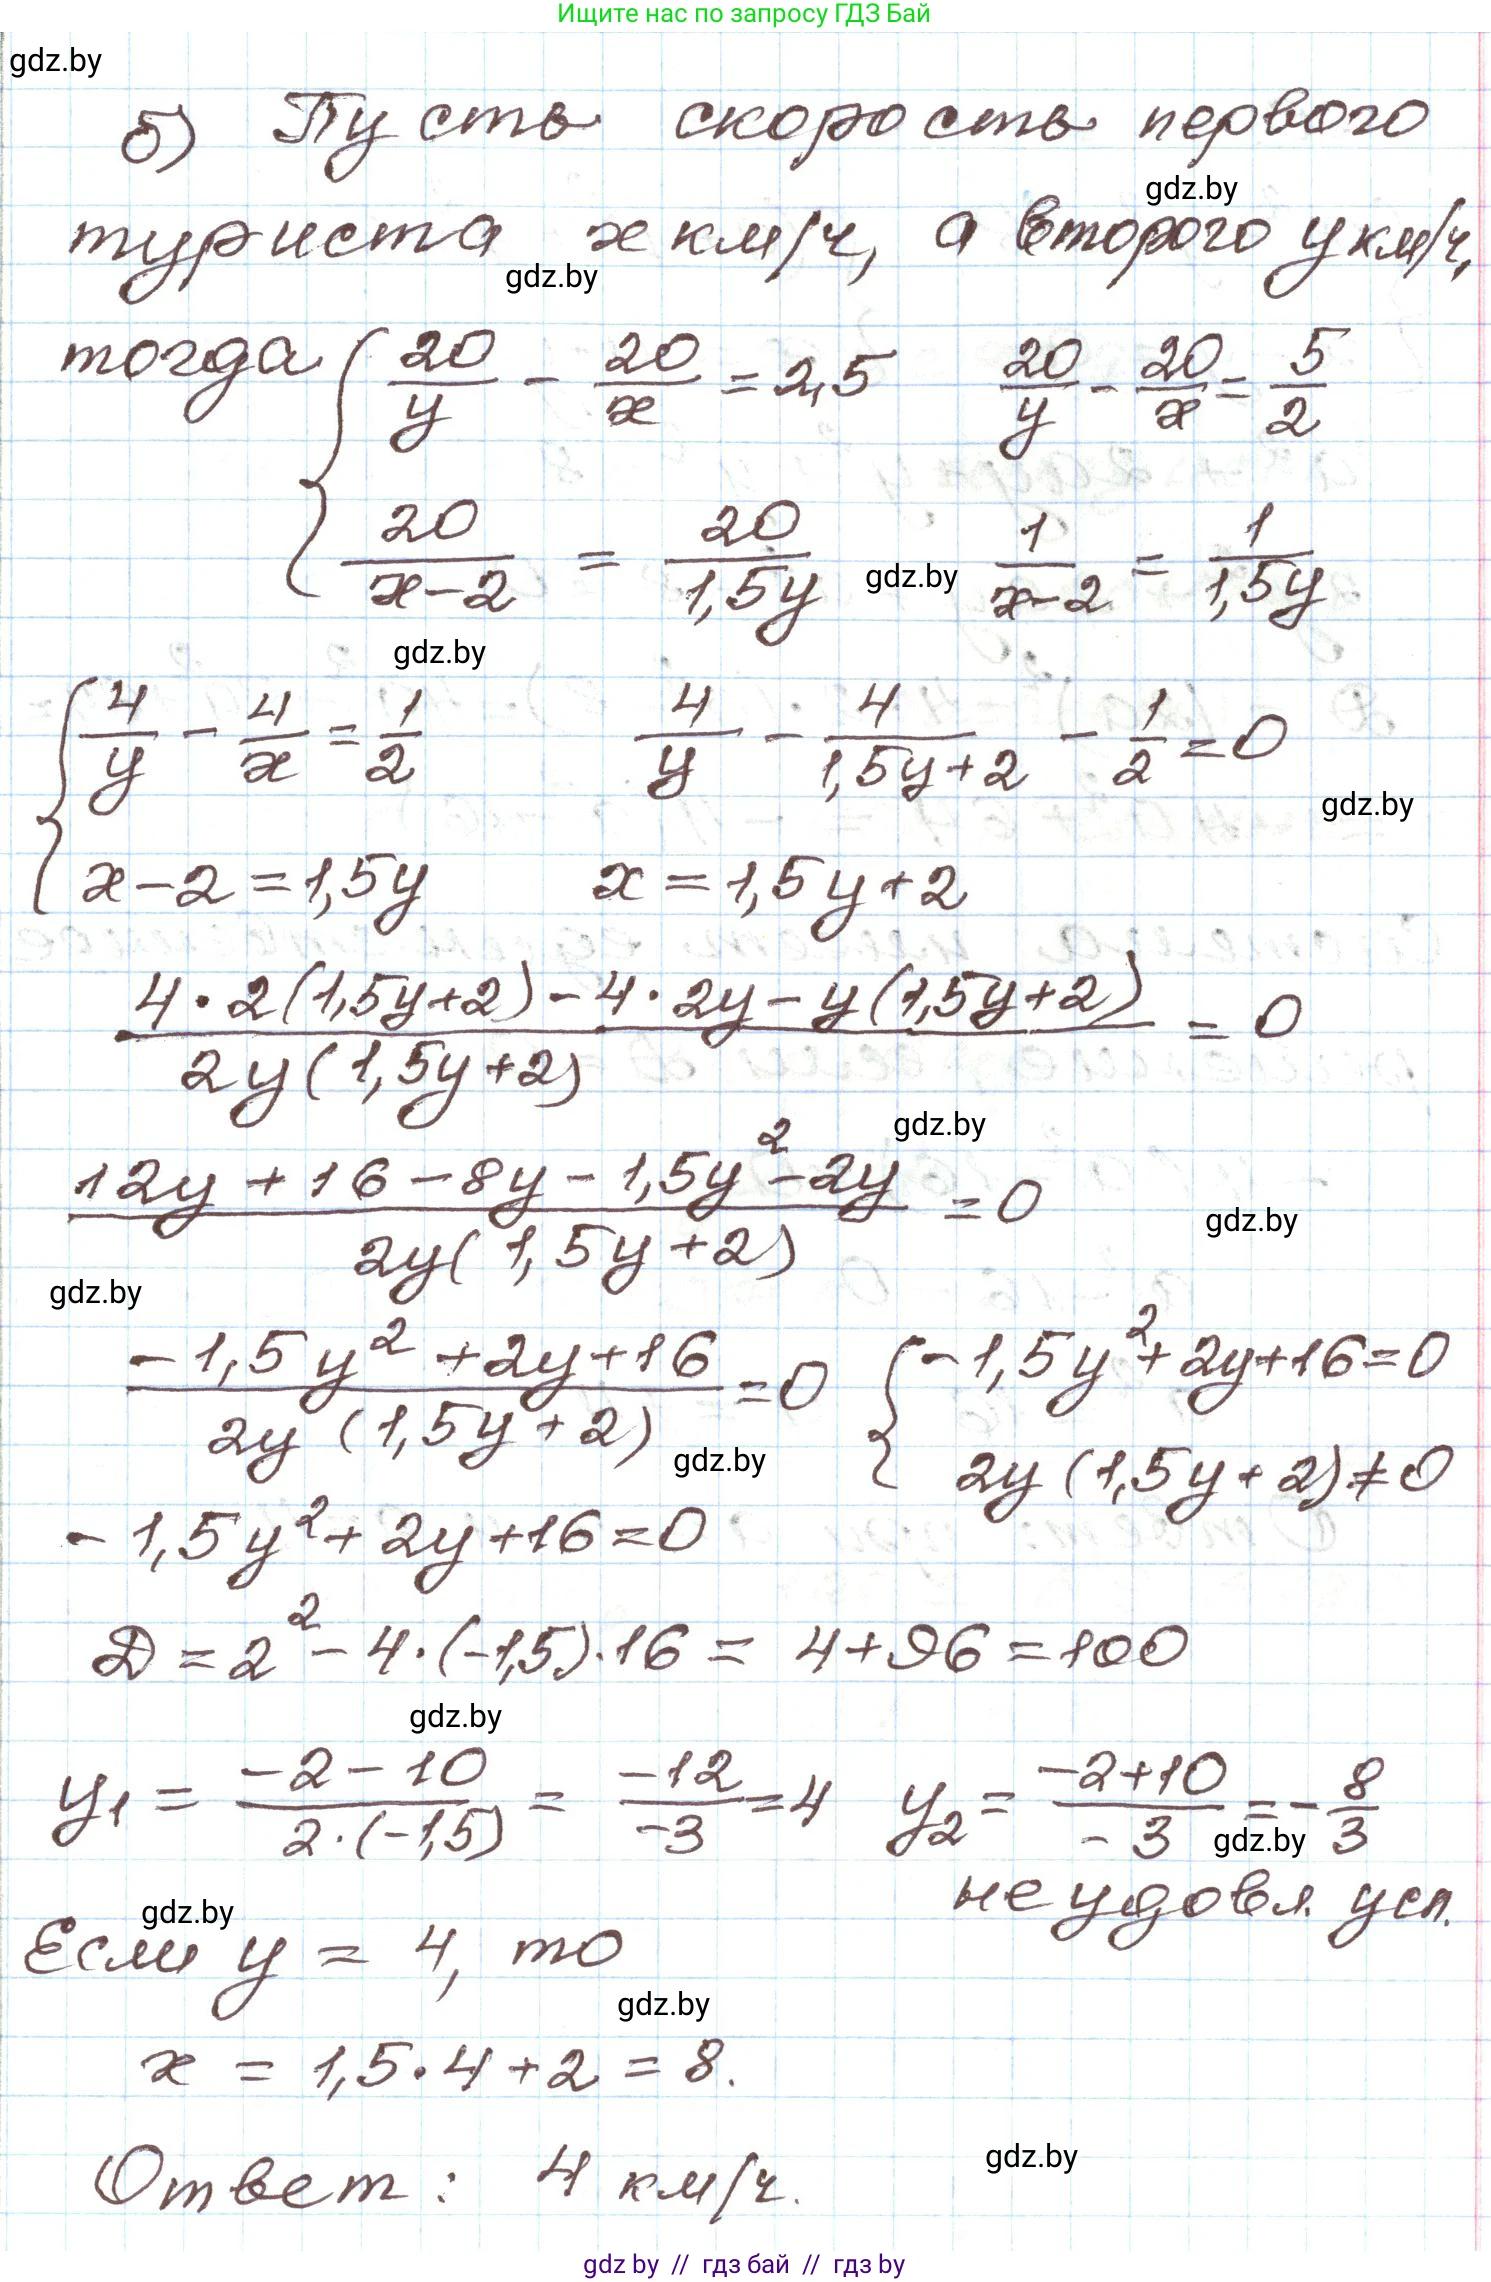 Ищите нас по запросу ГДЗ Бай
gdz.by
б) Пусть скорость первого
gdz.by
туриста x км/ч, а второго y км/ч,
gdz.by
тогда { 20/y - 20/x = 2,5    20/y - 20/x = 5/2
{ 20/(x-2) = 20/(1,5y)    gdz.by    1/(x-2) = 1/(1,5y)
gdz.by
{ 4/y - 4/x = 1/2    4/y - 4/(1,5y+2) - 1/2 = 0
gdz.by
{ x-2 = 1,5y    x = 1,5y+2
(4·2(1,5y+2) - 4·2y - y(1,5y+2))/(2y(1,5y+2)) = 0
gdz.by
(12y + 16 - 8y - 1,5y² - 2y)/(2y(1,5y+2)) = 0
gdz.by
gdz.by
(-1,5y² + 2y + 16)/(2y(1,5y+2)) = 0    { -1,5y² + 2y + 16 = 0
gdz.by    { 2y(1,5y+2) ≠ 0
-1,5y² + 2y + 16 = 0
Д = 2² - 4·(-1,5)·16 = 4 + 96 = 100
gdz.by
y₁ = (-2-10)/(2·(-1,5)) = -12/-3 = 4    y₂ = (-2+10)/-3 = -8/3
gdz.by
не удовл. усл.
gdz.by
Если y = 4, то
gdz.by
x = 1,5·4 + 2 = 8.
gdz.by
Ответ: 4 км/ч.
gdz by // гдз бай // гдз by